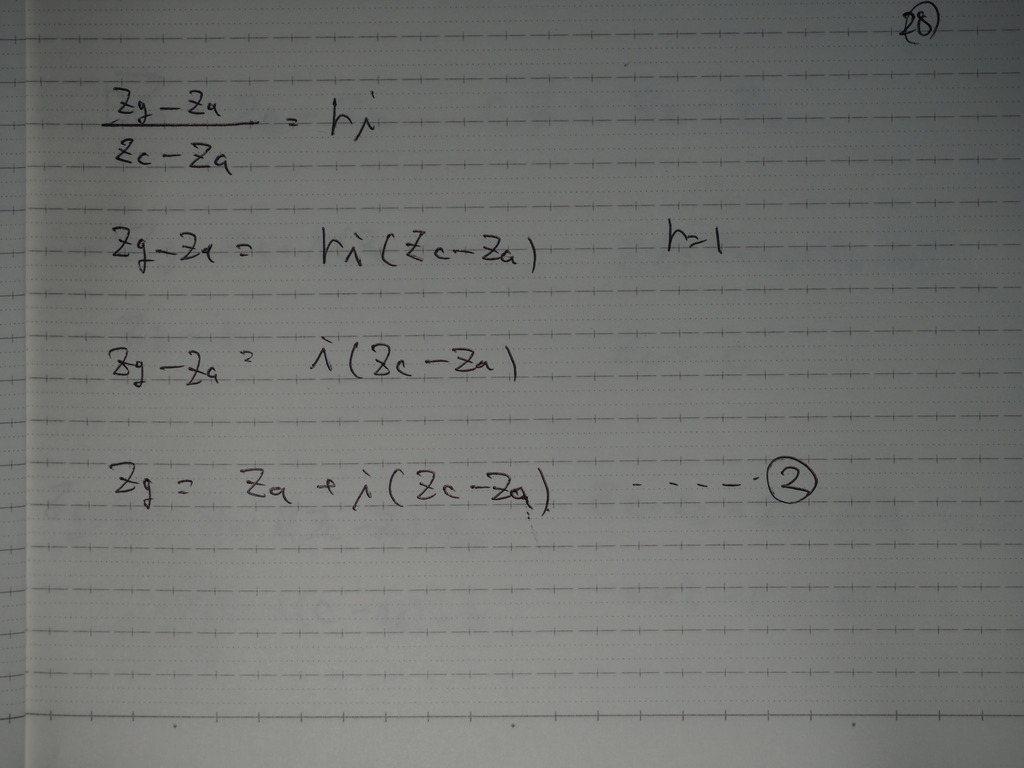 28
Zg - Za / Zc - Za = ri
Zg - Za = ri (Zc - Za) r=1
Zg - Za = i (Zc - Za)
Zg = Za + i (Zc - Za) ------ ②